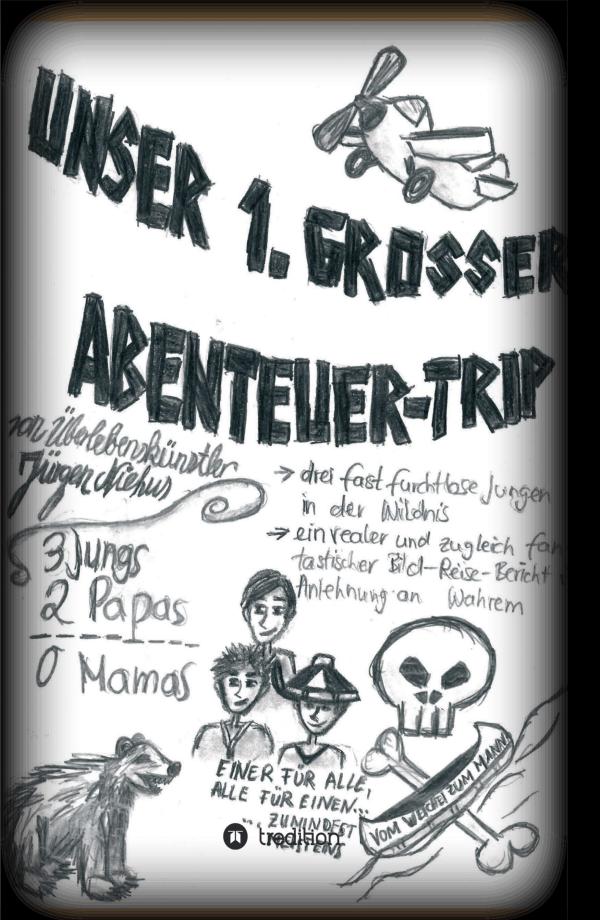 UNSER
1. GROSSER
ABENTEUER-TRIP
von Überlebenskünstler
Jürgen Niehus
→ drei fast furchtlose Jungen
in der Wildnis
→ ein realer und zugleich fan
tastischer Bild-Reise-Bericht
Anlehnung an Wahrem
3 Jungs
2 Papas
0 Mamas
EINER FÜR ALLE,
ALLE FÜR EINEN...
... ZUMINDEST
MEISTENS
tredition
VOM WEICHEI ZUM MANN!